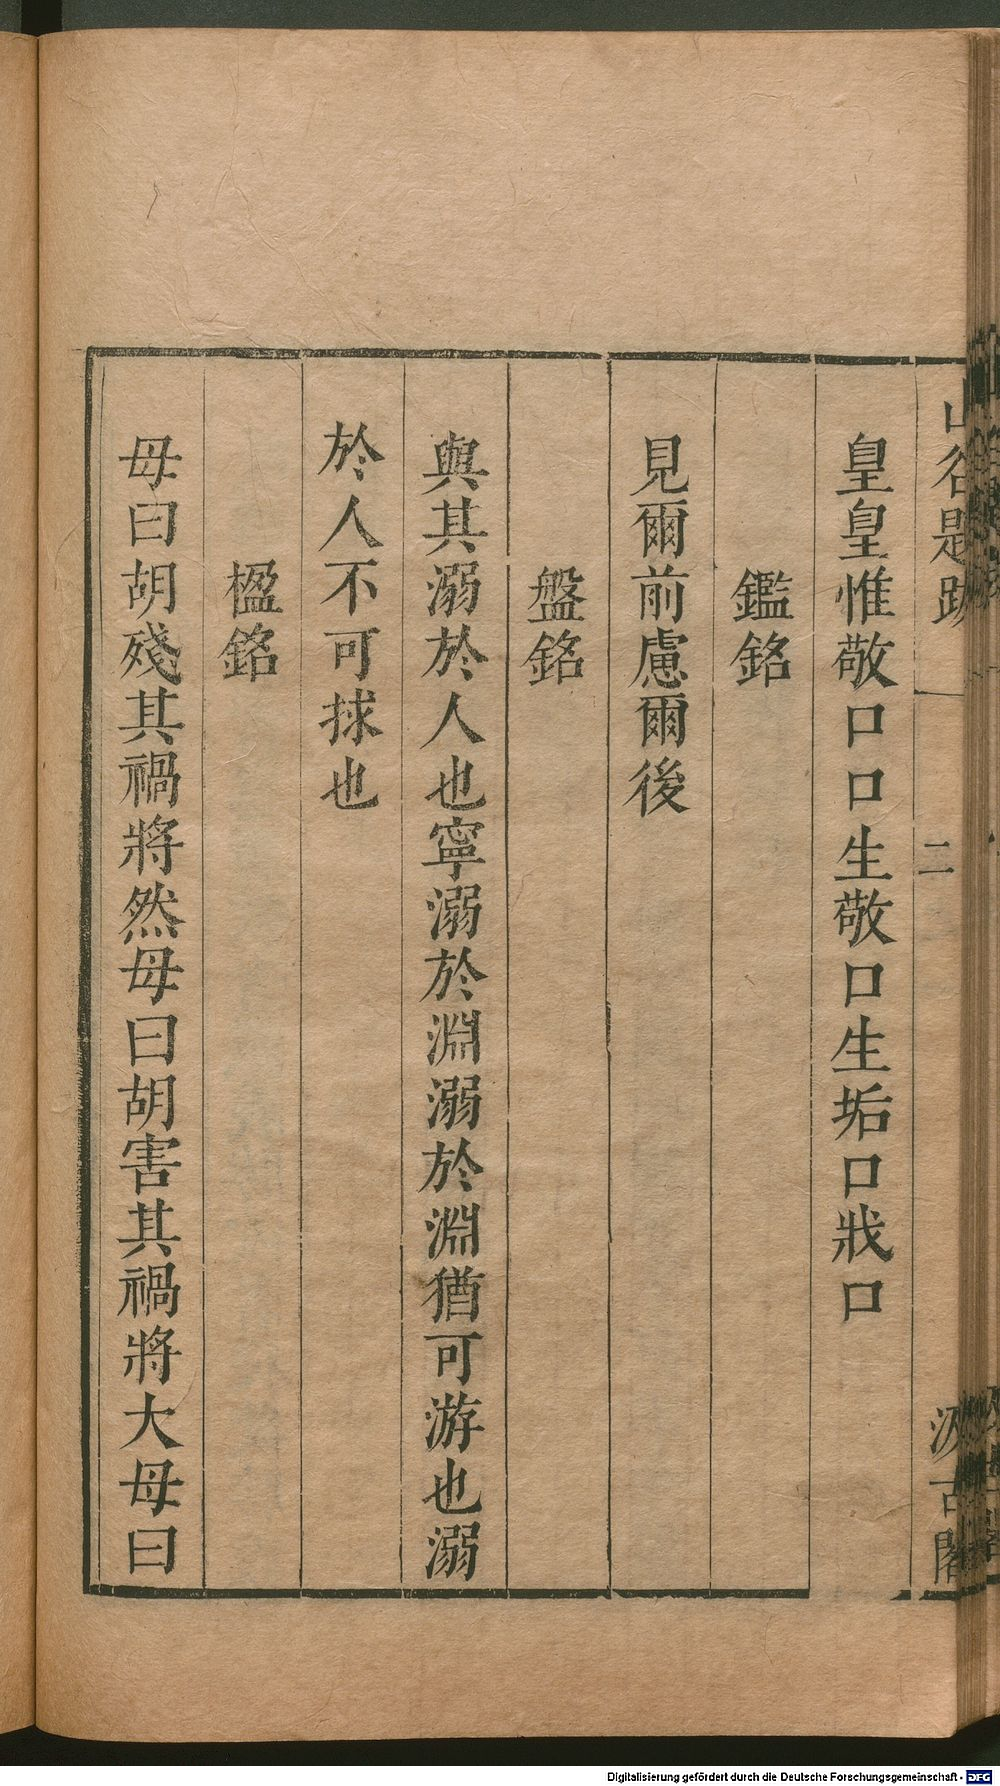 山谷題跋 二 汲古閣
皇皇惟敬口口生敬口生垢口戕口
鑑銘
見爾前慮爾後
盤銘
與其溺於人也寧溺於淵溺於淵猶可游也溺
於人不可捄也
楹銘
毋曰胡殘其禍將然毋曰胡害其禍將大毋曰
Digitalisierung gefördert durch die Deutsche Forschungsgemeinschaft - DFG